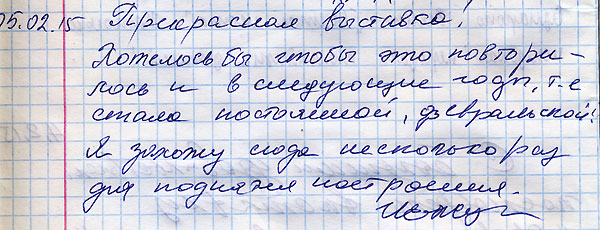 05.02.15 Прекрасная выставка!
Хотелось бы чтобы это повтори-
лось и в следующие годы, т.е
стала постоянной, февральской!
Я захожу сюда несколько раз
для поднятия настроения.